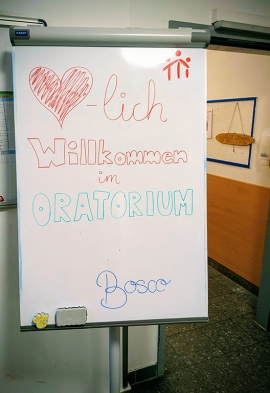 -lich
Willkommen
im
ORATORIUM
Bosco